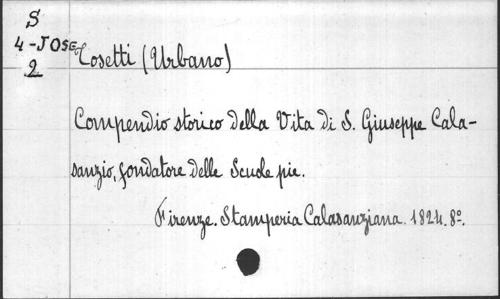 S
4-JOSE
2
Tosetti (Urbano)
Compendio storico della Vita di S. Giuseppe Cala-
sanzio, fondatore delle Scuole pie.
Firenze. Stamperia Calasanziana. 1824. 8º.